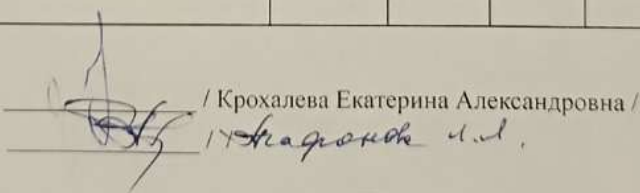 / Крохалева Екатерина Александровна /
/ Агафонов Л.Л.